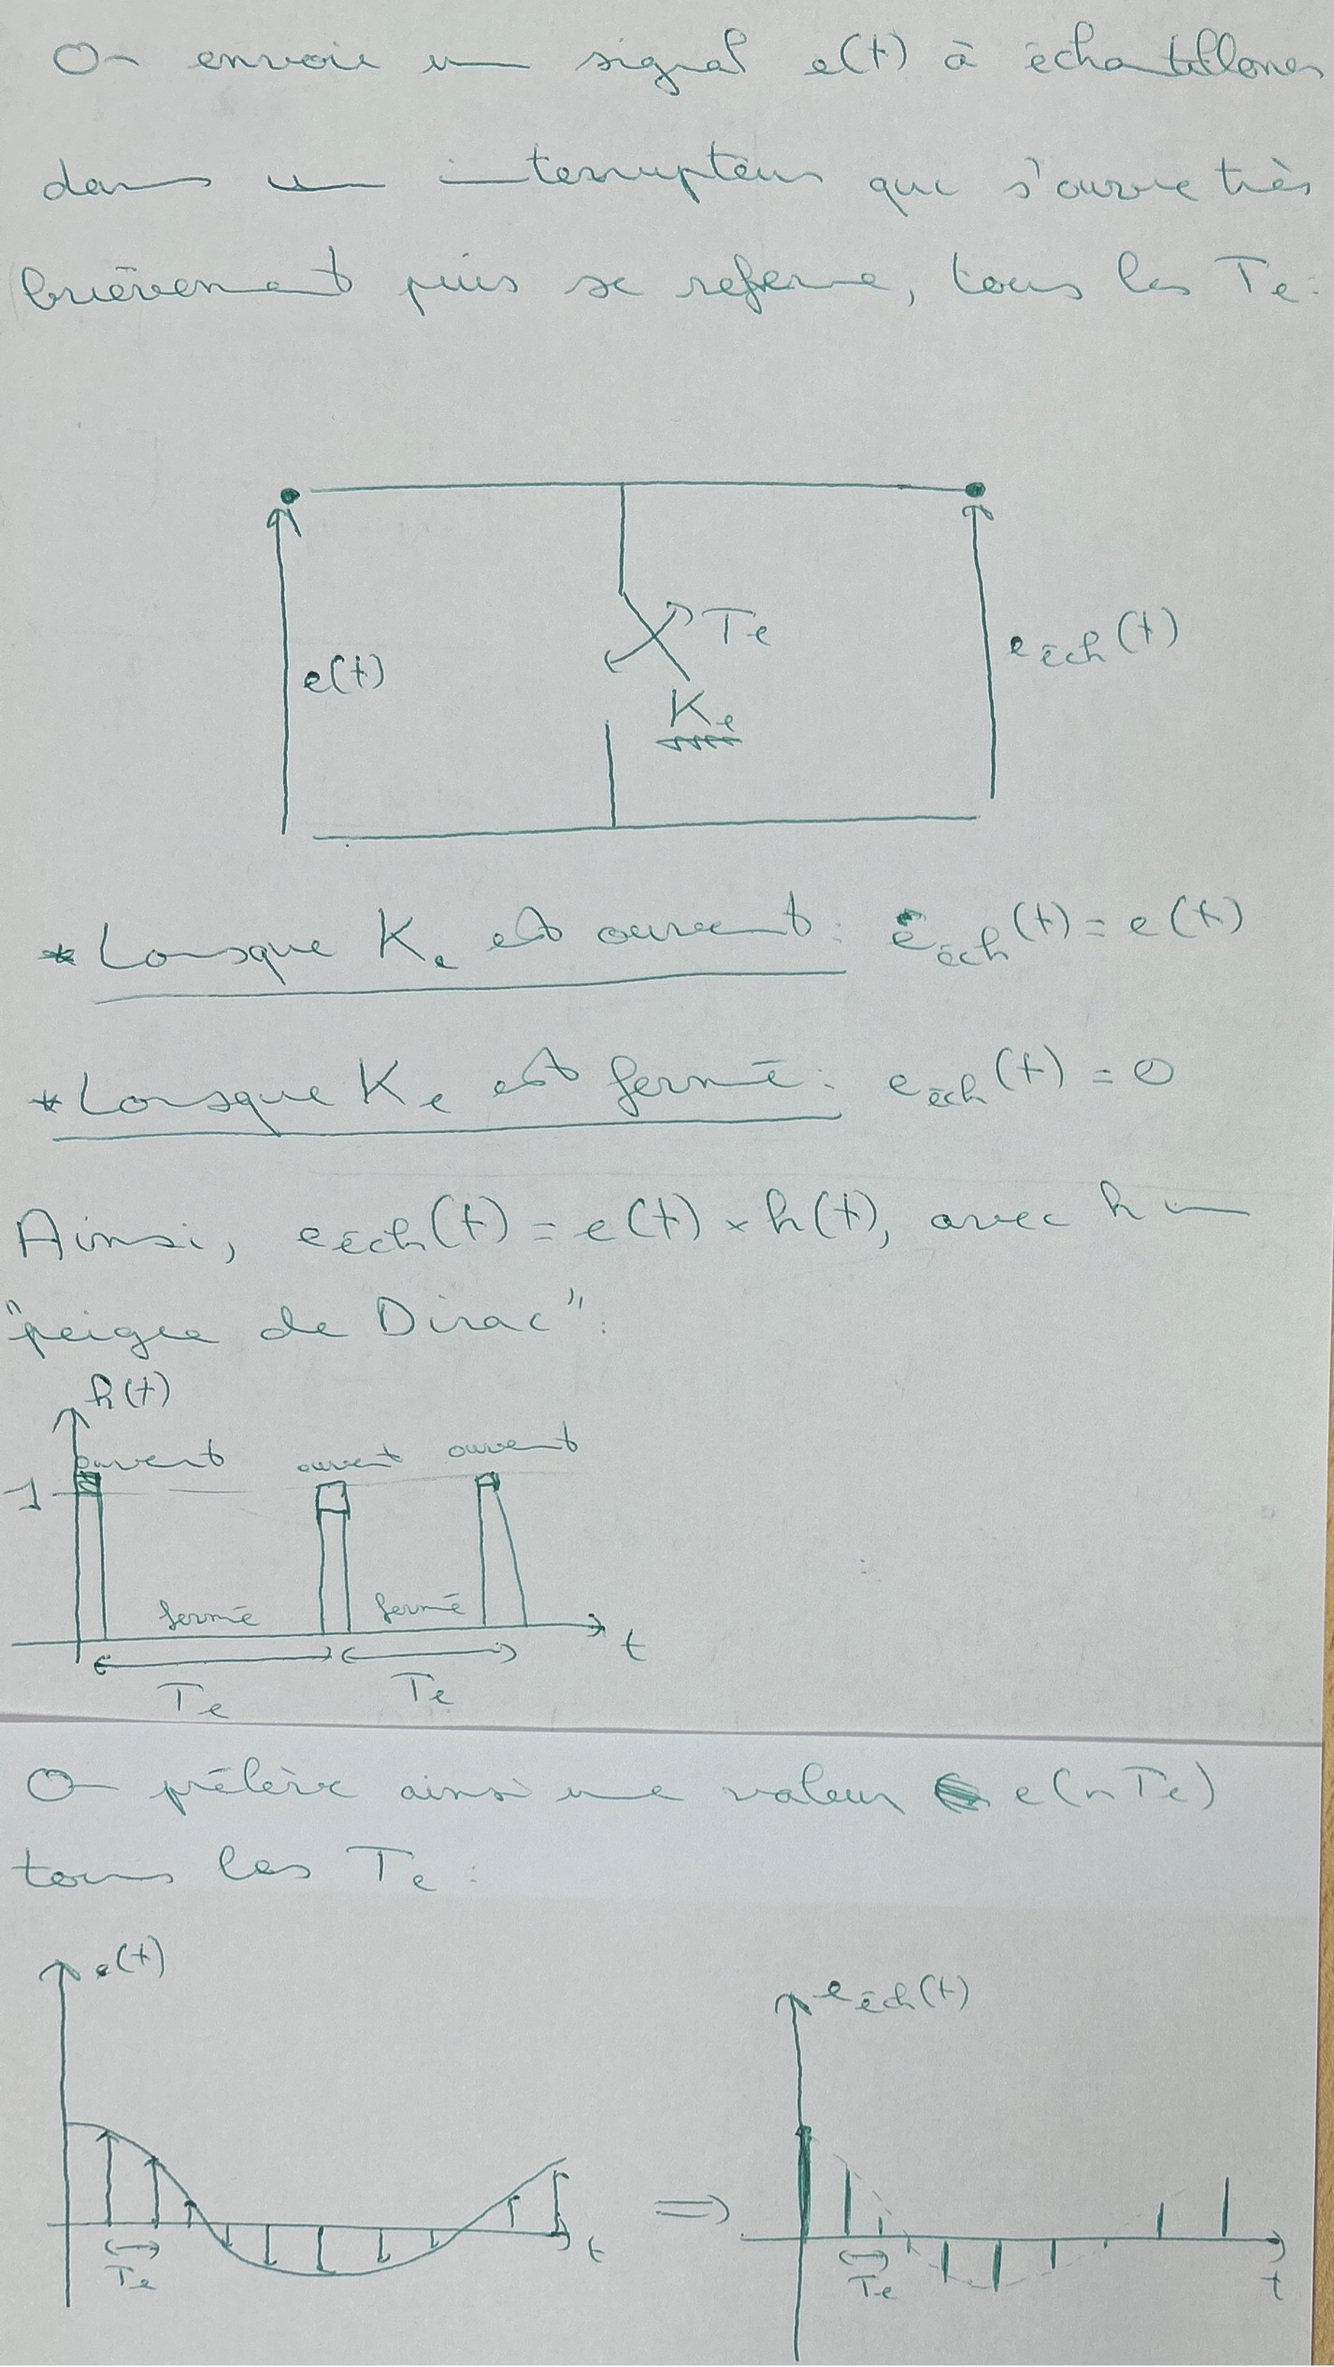 On envoie un signal e(t) à échantillonner
dans un interrupteur qui s'ouvre très
brièvement puis se referme, tous les Te:
Te
e(t)
eéch(t)
Ke
* Lorsque Ke est ouvert: eéch(t) = e(t)
* Lorsque Ke est fermé: eéch(t) = 0
Ainsi, eéch(t) = e(t) × h(t), avec h un
"peigne de Dirac":
h(t)
ouvert ouvert ouvert
1
fermé fermé
t
Te Te
On prélève ainsi une valeur e(nTe)
tous les Te:
e(t)
eéch(t)
⇒
Te
t
Te
t